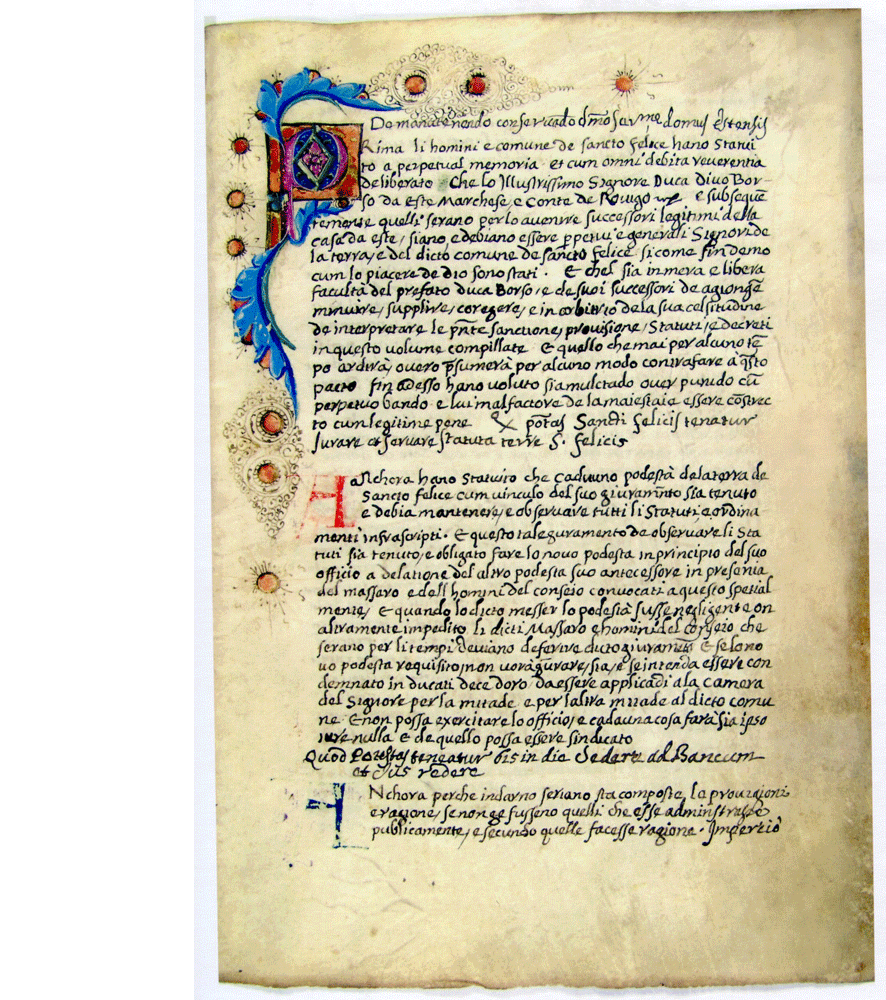 De manutenendo conservando domus Estensis
PRima li homini e comune de sancto felice hano Statui
to a perpetual memoria et cum omni debita reverentia
deliberato Che lo Illustrissimo Signore Duca Divo Bor-
so da Este Marchese, e Conte de Rovigo e subsequē
temente quelli serano per lo avenire successori legitimi della
casa da este, siano, e debiano essere ꝑpetui e generali Signori de
la terra, e del dicto comune de sancto felice si come fin demo
cum lo piacere de dio sono stati. E chel sia in mera e libera
facultà del prefato duca Borso, e de suoi successori de agiongē
minuire, supplire, coregere, e in arbitrio de la sua celsitudine
de interpretare le pn̄te sanctione, provisione, Statuti, e decreti
in questo volume compillate E quello che mai per alcuno tē
po ardirà, overo p̄sumerà per alcuno modo contrafare à q̄sto
pacto fin adesso hano voluto sia mulctado over punido cū
perpetuo bando e lui malfactore de la maiestaie essere cōstrec
to cum legitime pene potas Sancti felicis tenatur
Jurare et servare statuta terre S. felicis
ANchora hano Statuito che caduuno podestà de la terra de
Sancto felice cum vinculo del suo giuramn̄to sia tenuto
e debia mantenere, e observare tutti li Statuti, e ordina
menti infrascripti. E questo tale guramento de observare li Sta
tuti sia tenuto, e obligato fare lo novo podesta in principio del suo
officio a delatione del altro podesta suo antecessore in presentia
del massaro e dell homini del conseio convocati a questo spetial
mente, E quando lo dicto messer lo podestà fusse negligente on
altramente impedito li dicti Massaro e homini del conseio che
serano per li tempi deviano deferire dicto giuramēto E se lo no
vo podesta requisito non vorà gurare, sia, e se intenda essere con
demnato in ducati dece doro da essere applicadi a la Camera
del Signore per la mitade e per laltra mitade al dicto comu
ne E non possa exercitare lo officio, e cadauna cosa farà sia ipso
iure nulla E de quello possa essere sindicato
Quod Potestas teneatur bis in die Sedere ad Bancum
et Jus redere
ANchora perche indarno seriano sta composte, le provixioni
e ragione, se non ge fusseno quelli che esse administrasse
publicamente, e secundo quelle facesse ragione.